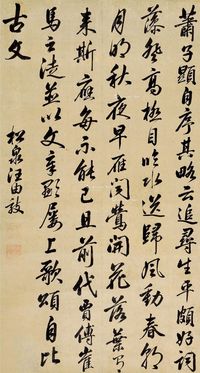 蕭子顯自序其略云追尋生平頗好詞
藻登高極目臨水送歸風動春朝
月明秋夜早雁聞鶯開花落葉有
來斯應每不能已且前代賈傅崔
馬之徒並以文章顯屢上歌頌自比
古文
松泉汪由敦